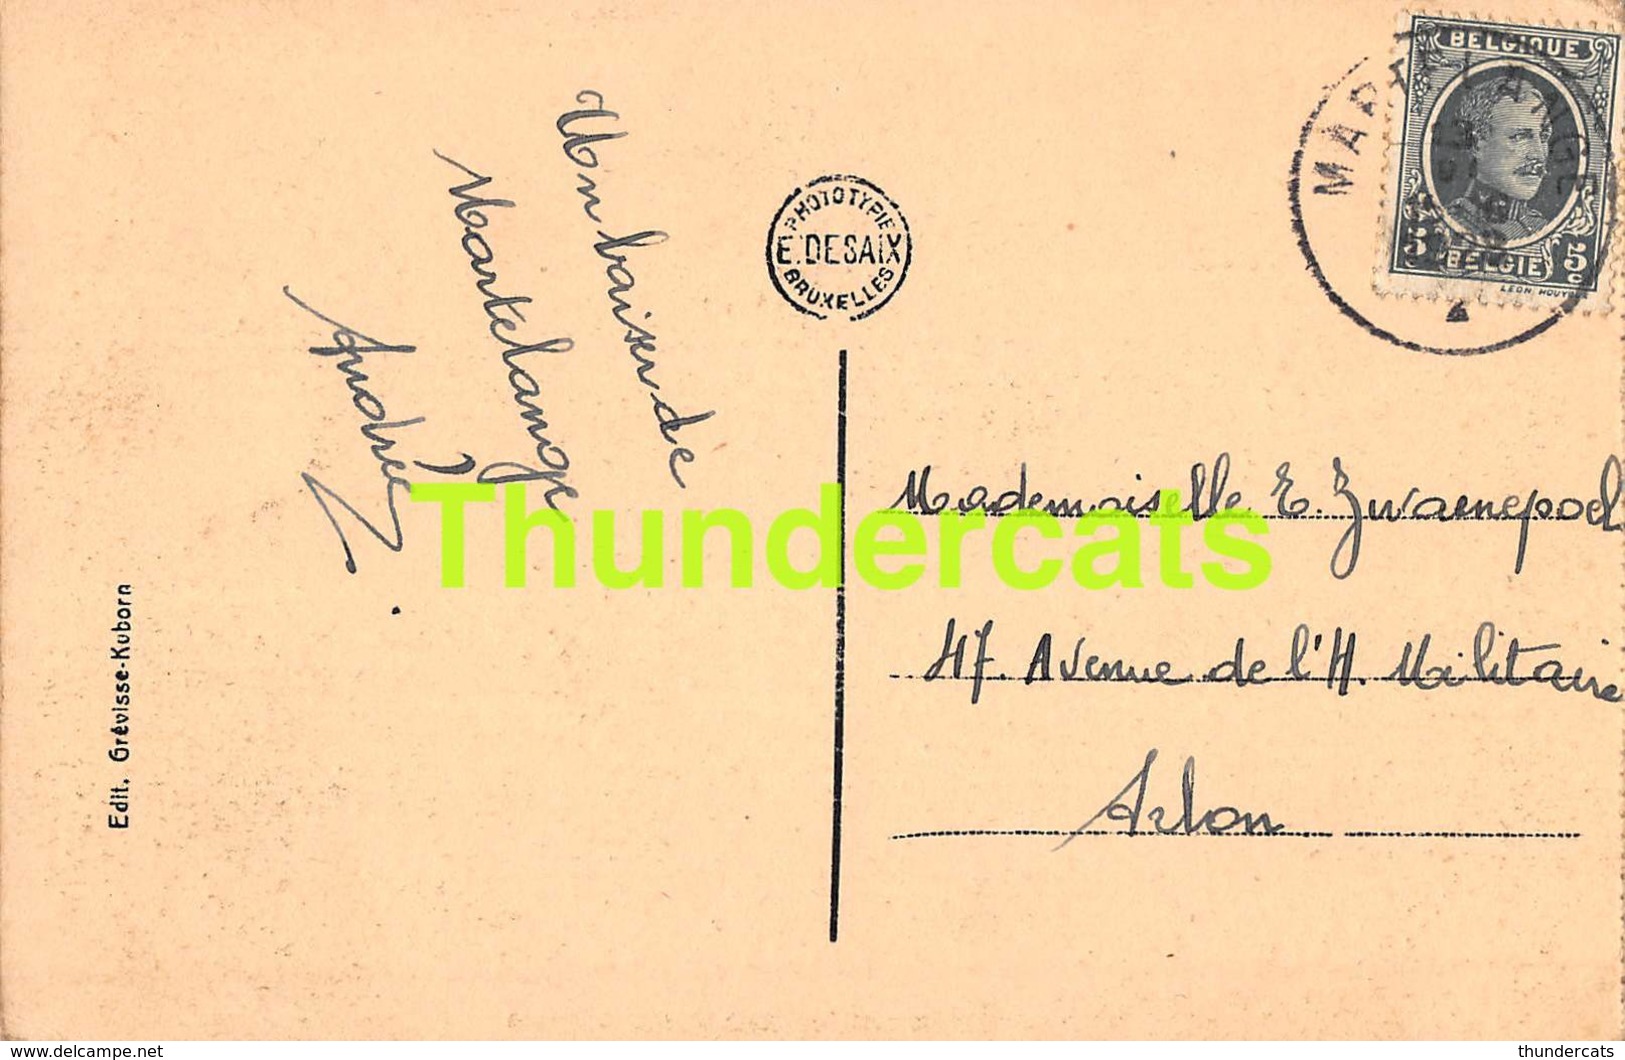 Un baiser de
Martelange
Andrée
PHOTOTYPIE
E. DESAIX
BRUXELLES
MARTELANGE
BELGIQUE
5c
5c
BELGIE
Mademoiselle E. Zwaenepoel
47. Avenue de l'H. Militaire
Arlon
Edit. Grévisse-Kuborn
Thundercats
www.delcampe.net
thundercats